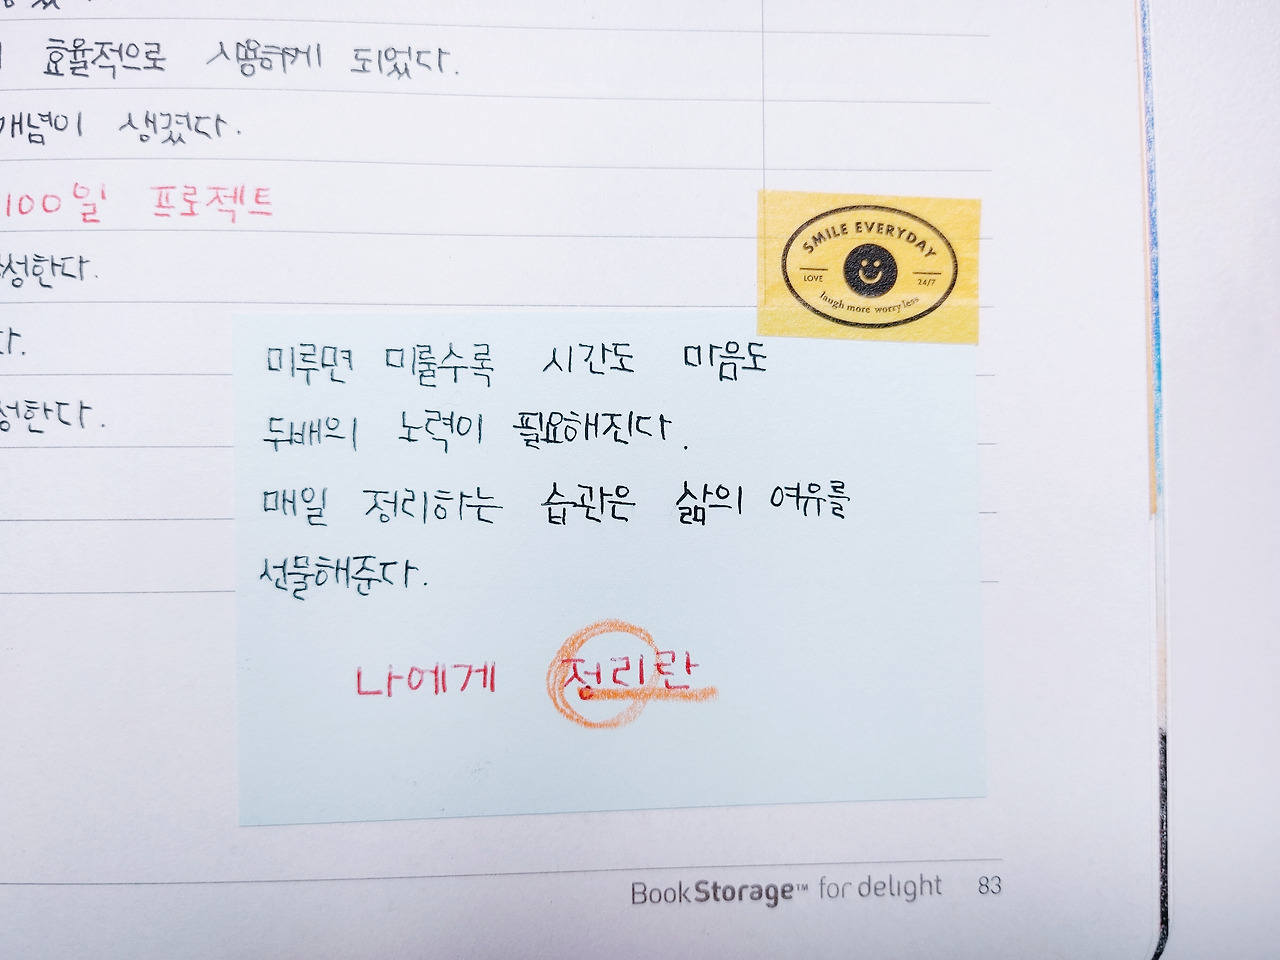 효율적으로 사용하게 되었다.
개념이 생겼다.
100일 프로젝트
성한다.
다.
성한다.
SMILE EVERYDAY
LOVE
24/7
laugh more worry less
미루면 미룰수록 시간도 마음도
두배의 노력이 필요해진다.
매일 정리하는 습관은 삶의 여유를
선물해준다.
나에게 정리란
BookStorage™ for delight 83